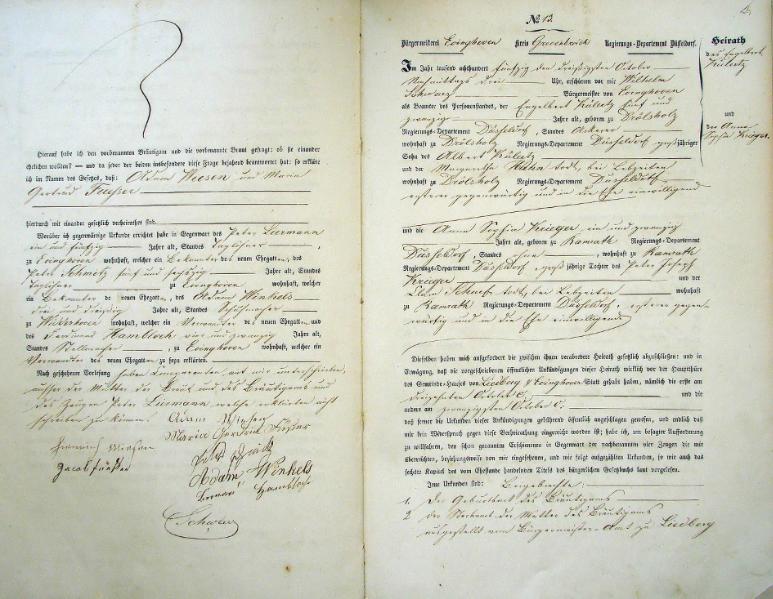 Hierauf habe ich den vorbenannten Bräutigam und die vorbenannte Braut gefragt: ob sie einander
ehelichen wollen? — und da jeder der beiden insbesondere diese Frage bejahend beantwortet hat: so erkläre
ich im Namen des Gesetzes, daß: Adam Wiesen und Maria
Gertrud
hierdurch mit einander gesetzlich verheirathet sind.
Worüber ich gegenwärtige Urkunde errichtet habe in Gegenwart des Peter Liermann
ein und fünfzig Jahre alt, Standes Taglöhner,
zu Evinghoven wohnhaft, welcher ein Bekannter des neuen Ehegatten, des
Peter Schmitz fünf und sechszig Jahre alt, Standes
Taglöhner zu Evinghoven wohnhaft, welcher
ein Bekannter des neuen Ehegatten, des Adam Winkels
Jahre alt, Standes
zu wohnhaft, welcher ein Verwandter des neuen Ehegatten und
des Hambloch vier und zwanzig Jahre alt,
Standes , zu Evinghoven wohnhaft, welcher ein
Verwandter des neuen Ehegatten, zu seyn erklärte.
Nach geschehener Vorlesung haben Comparenten mit mir unterschrieben,
außer der Mutter der Braut und des Bräutigams und
des Zeugen Peter Liermann welche erklärten nicht
schreiben zu können. Adam
Maria Gertrud
Heinrich
Jacob
Adam Winkels
Hambloch
Schwarz
No 13.
Bürgermeisterei Evinghoven Kreis Grevenbroich Regierungs-Departement Düsseldorf.
Heirath
des Engelbert
Külertz
und
der Anna
Sophia Krieger
Im Jahr tausend achthundert fünfzig den dreißigsten October
Nachmittags drei Uhr, erschienen vor mir Wilhelm
Schwarz Bürgermeister von Evinghoven
als Beamten des Personenstandes, der Engelbert Külertz fünf und
zwanzig Jahre alt, geboren zu Drölsholz
Regierungs-Departement Düsseldorf, Standes Ackerer
wohnhaft zu Drölsholz Regierungs-Departement Düsseldorf großjähriger
Sohn des Albert Külertz
und der Margaretha Hahn todt, bei Lebzeiten
wohnhaft zu Drölsholz Regierungs-Departement Düsseldorf
ersterer gegenwärtig und in die Ehe einwilligend
und die Anna Sophia Krieger ein und zwanzig
Jahre alt, geboren zu Ramrath Regierungs-Departement
Düsseldorf, Standes ohne, wohnhaft zu Ramrath
Regierungs-Departement Düsseldorf, großjährige Tochter des Peter Joseph
Krieger und der
todt, bei Lebzeiten wohnhaft
zu Ramrath Regierungs-Departement Düsseldorf, ersterer gegen-
wärtig und in die Ehe einwilligend
Dieselben haben mich aufgefordert die zwischen ihnen verabredete Heirath gesetzlich abzuschließen: und in
Erwägung, daß die vorgeschriebenen öffentlichen Ankündigungen dieser Heirath wirklich vor der Hauptthüre
des Gemeinde-Hauses von Liedberg & Evinghoven Statt gehabt haben, nämlich die erste am
dreizehnten October c. und die
andere am zwanzigsten October c.
daß ferner die Urkunden dieser Ankündigungen gesetzlich öffentlich angeschlagen gewesen, und endlich daß
mir kein Widerspruch gegen diese Verheirathung eingereicht worden ist; habe ich, um besagter Aufforderung
zu willfahren, den schon genannten Erschienenen in Gegenwart der nachbenannten vier Zeugen die mir
überreichten, beziehungsweise von mir eingesehenen, und wie folgt aufgezählten Urkunden, so wie auch das
sechste Kapitel des vom Ehestande handelnden Titels des bürgerlichen Gesetzbuchs laut vorgelesen.
Jene Urkunden sind: Beigebrachte:
1. Die Geburtsact des Bräutigams
2 der Sterbeact der Mutter des Bräutigams
ausgestellt vom Bürgermeister-Amt zu Liedberg